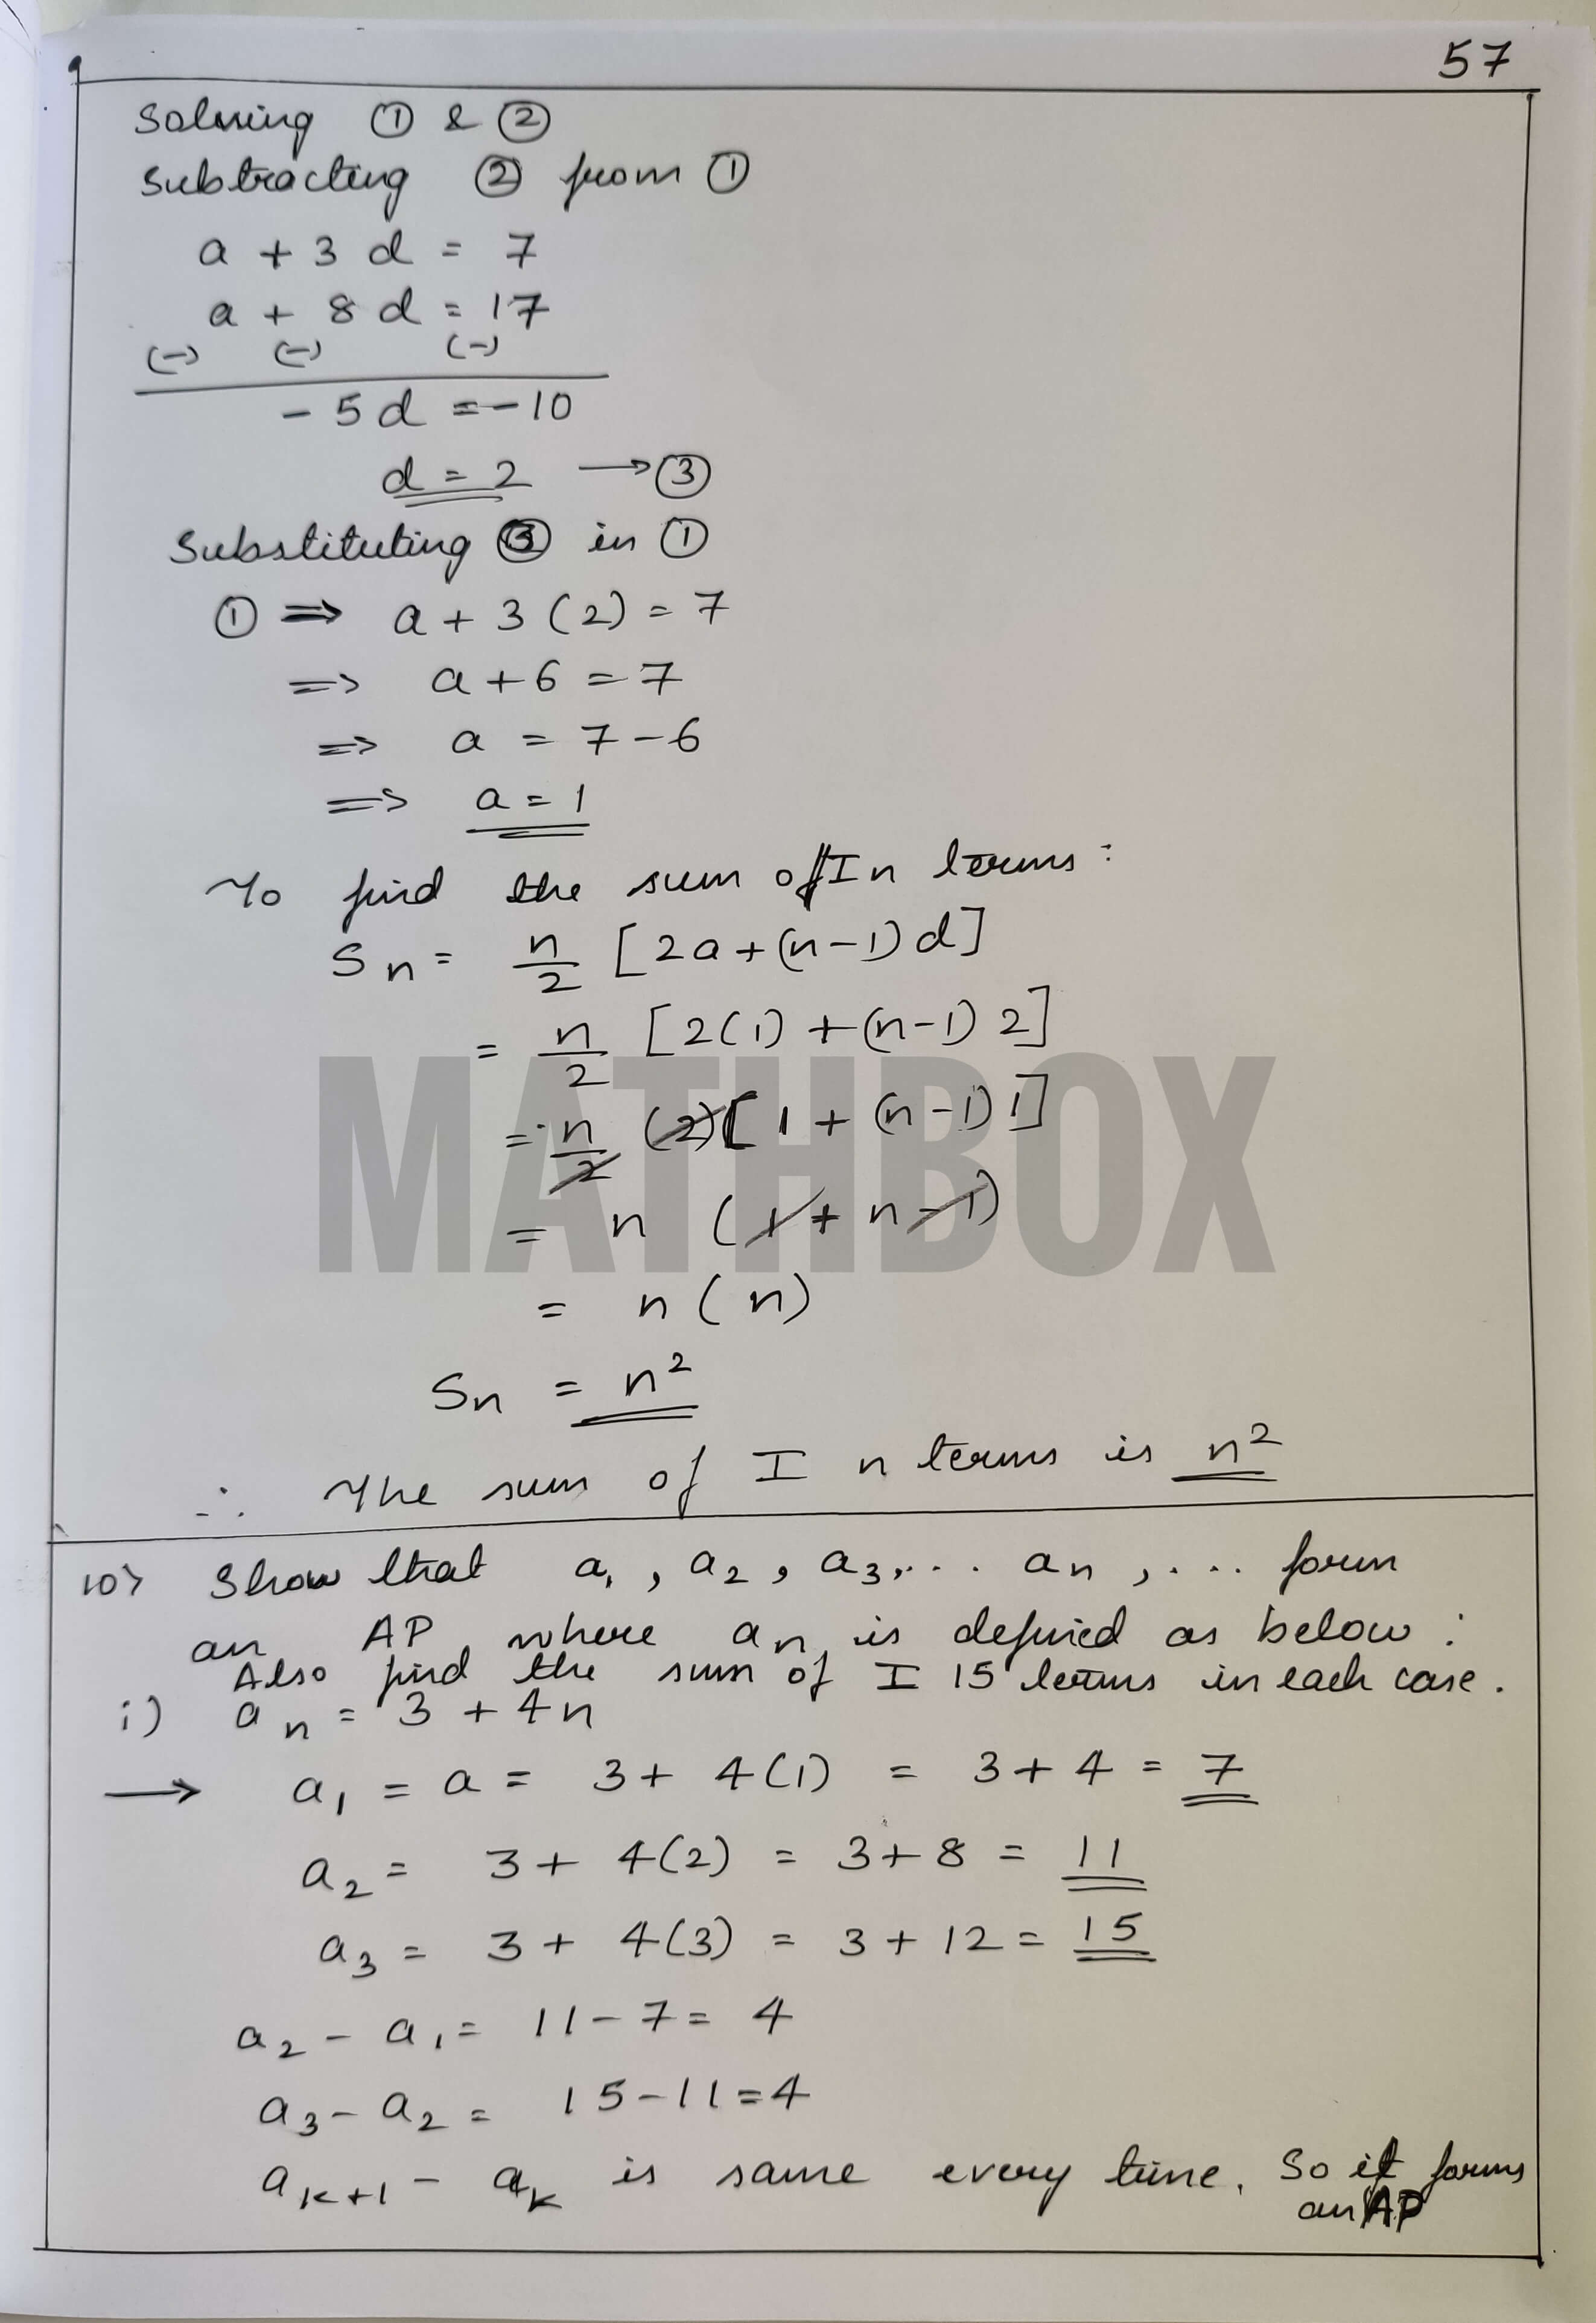 57
Solving ① & ②
Subtracting ② from ①
a + 3d = 7
a + 8d = 17
(-) (-) (-)
-5d = -10
d = 2 → ③
Substituting ③ in ①
① ⇒ a + 3(2) = 7
⇒ a + 6 = 7
⇒ a = 7 - 6
⇒ a = 1
To find the sum of I n terms :
Sn = n/2 [2a + (n-1)d]
= n/2 [2(1) + (n-1) 2]
= n/2 (2)[1 + (n-1) 1]
= n (1 + n - 1)
= n(n)
Sn = n²
∴ The sum of I n terms is n²
MATHBOX
10) Show that a₁, a₂, a₃, ... aₙ, ... form
an AP where aₙ is defined as below :
Also find the sum of I 15 terms in each case.
i) aₙ = 3 + 4n
→ a₁ = a = 3 + 4(1) = 3 + 4 = 7
a₂ = 3 + 4(2) = 3 + 8 = 11
a₃ = 3 + 4(3) = 3 + 12 = 15
a₂ - a₁ = 11 - 7 = 4
a₃ - a₂ = 15 - 11 = 4
aₖ₊₁ - aₖ is same every time. So it forms
an AP